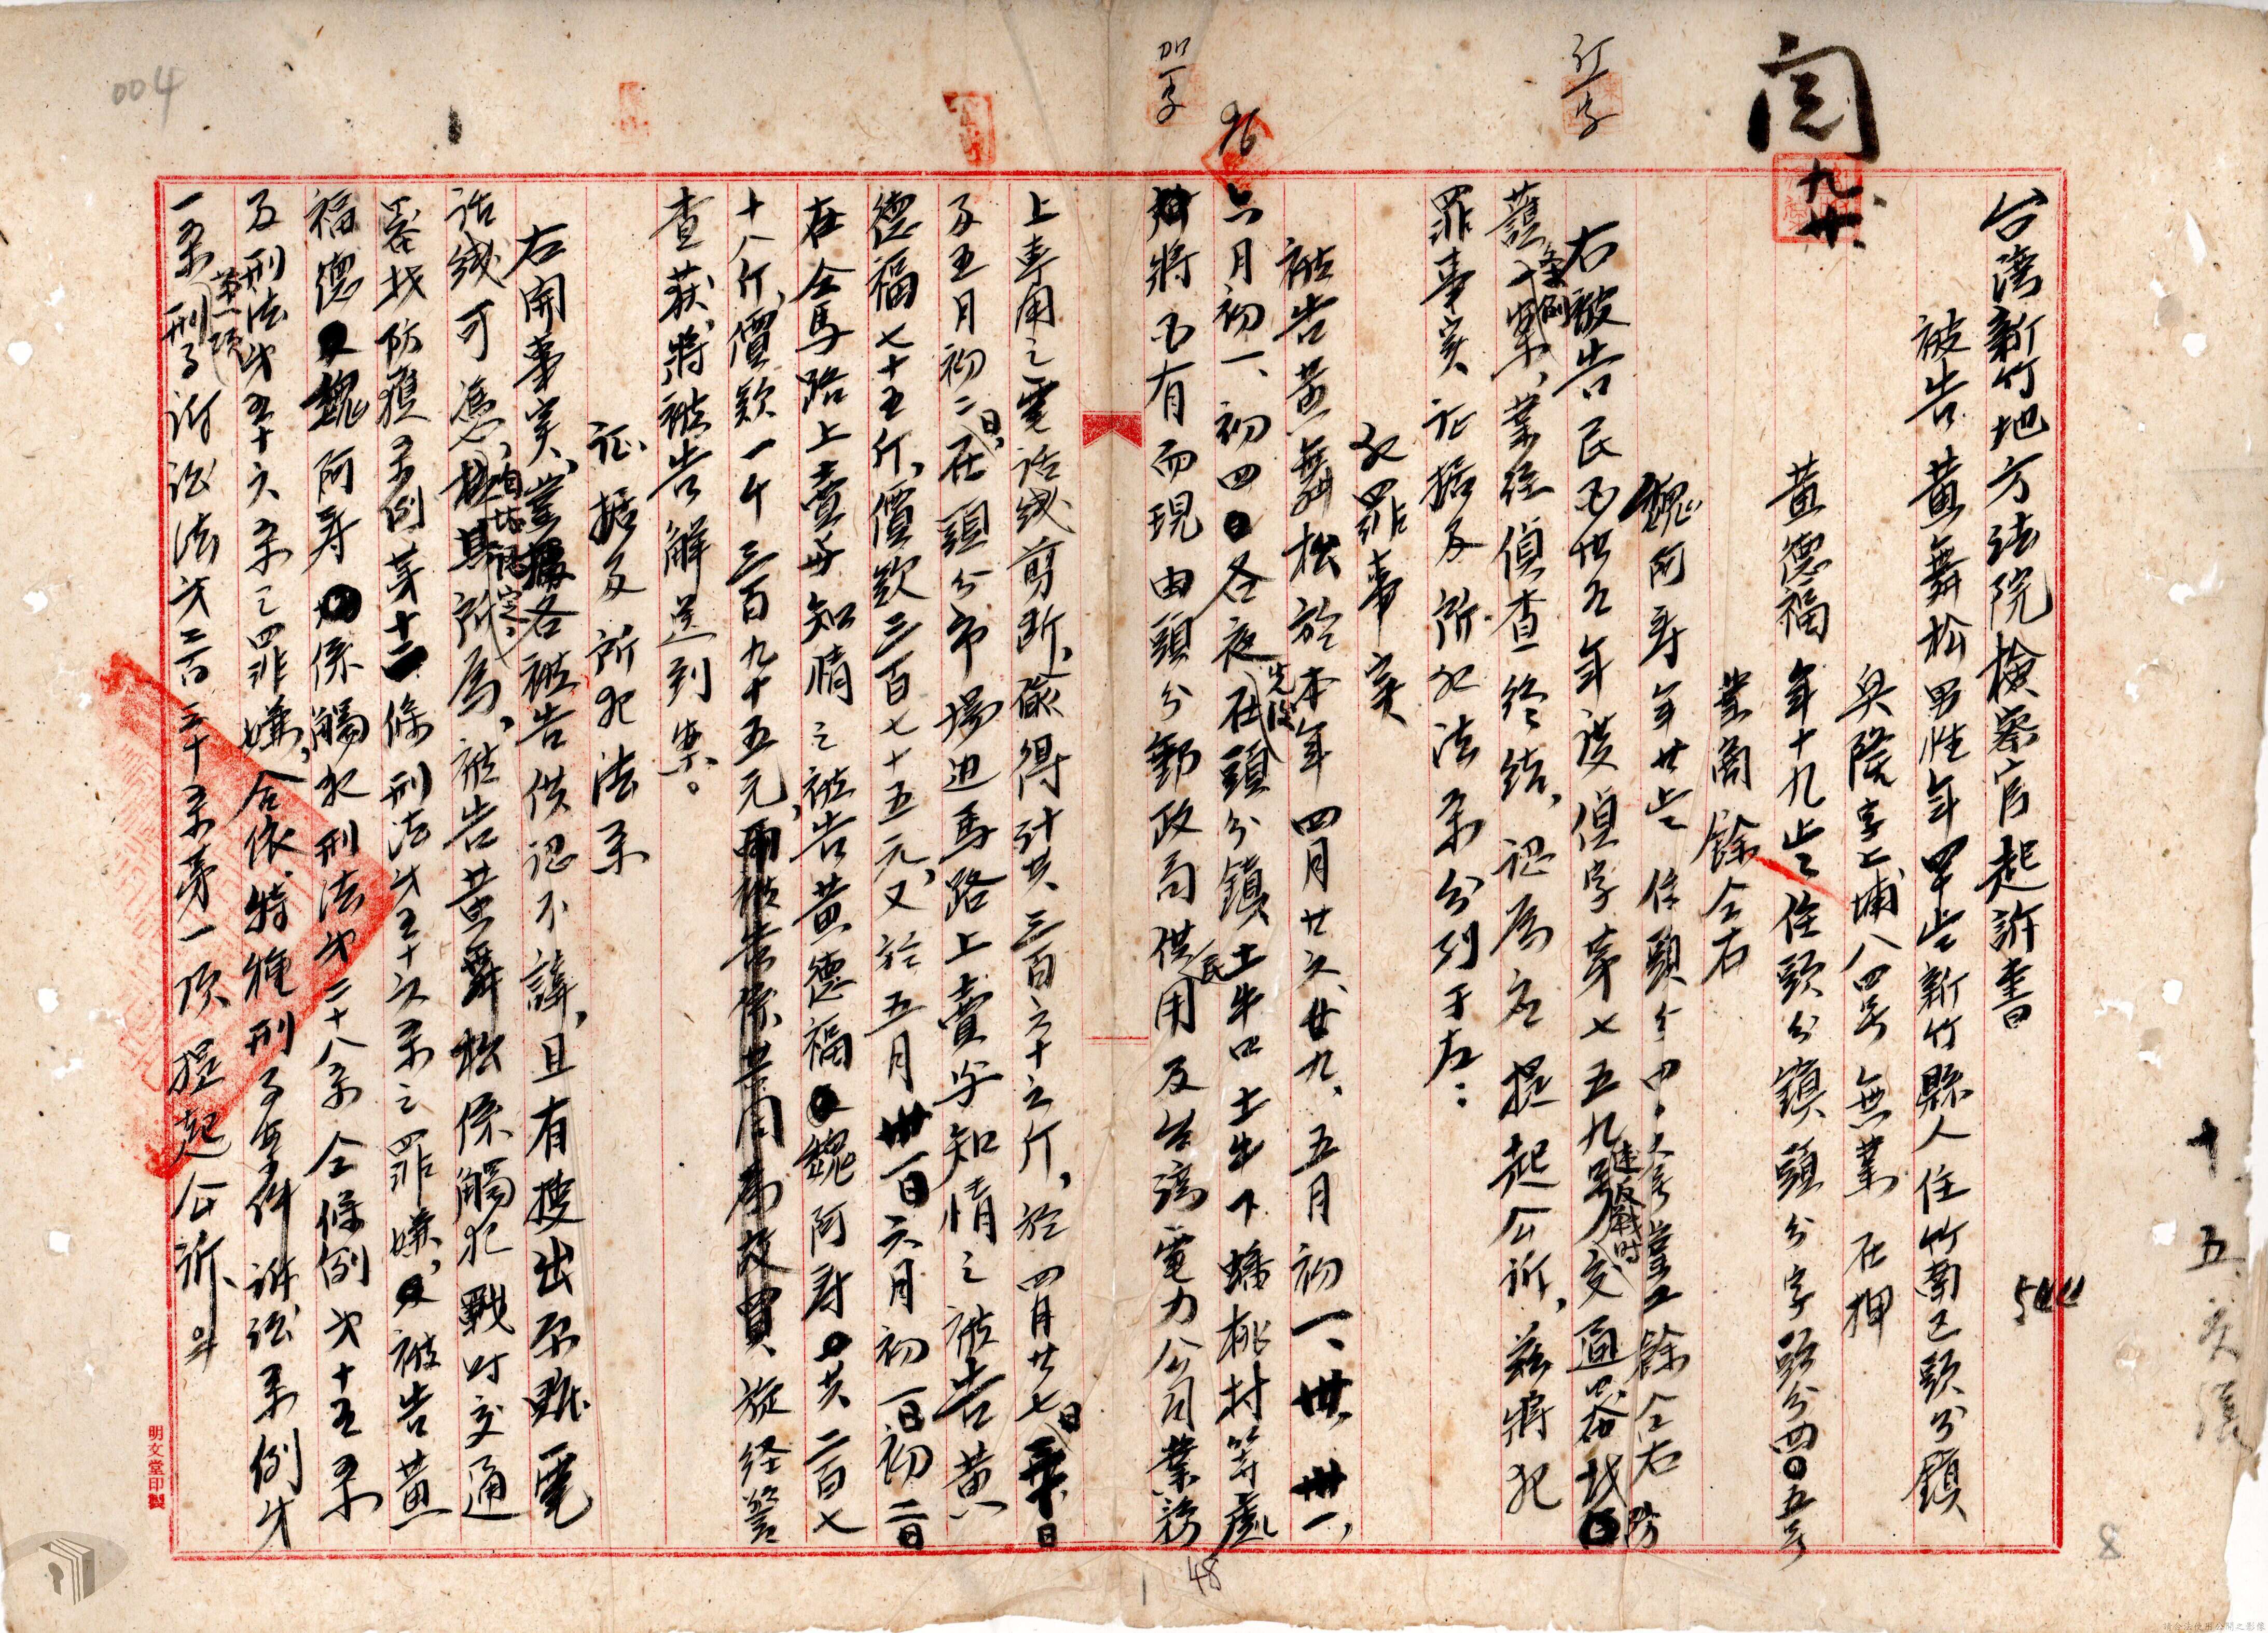 閱
九廿
台湾新竹地方法院檢察官起訴書
被告 黃舞松 男性 年 四十 歲 新竹縣人 住竹南区頭分鎮
興隆字上埔八四号 無業 在押
黃德福 年十九歲 住頭分鎮頭分字頭分四〇五号
業商 餘仝右
魏阿寿 年廿 歲 住頭分 業工 餘仝右
右被告民国卅九年度偵字第七五九號違反戰时交通器材防
護條例案,業经偵查終結,認為应提起公訴,茲將犯
罪事实証據及所犯法条分列于左:
犯罪事实
被告黃舞松於本年四月廿六、廿九、五月初一、卅、卅一、
六月初一、初四日各夜先後在頭分鎮土牛口土牛下蟠桃村等處
將国有而現由頭分郵政局供民用及台湾電力公司業務
上專用之電話线剪断,竊得計共三百六十 斤,於四月廿七日
及五月初二日,在頭分市場边馬路上賣与知情之被告黃
德福七十五斤,價款三百七十五元,又於五月卅一日六月初一日初二日
在仝馬路上賣与知情之被告黃德福及魏阿寿共二百七
十八斤,價款一千三百九十五元,旋经警
查获,將被告解送到案。
証據及所犯法条
右開事实,業據各被告供認不諱,且有搜出原賍電
話线可憑,自堪認定,被告黃舞松係觸犯戰时交通
器材防護条例第十二條刑法第五十六条之罪嫌,被告黃
福德及魏阿寿係觸犯刑法第二十八条仝條例第十五条
及刑法第五十六条之罪嫌,合依特種刑事案件訴訟条例第
一条第一項刑事訴訟法第二百三十条第一項提起公訴。
訂一字
加一字
96
004
48
8
明文堂印製